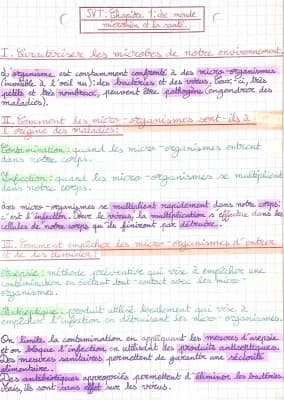 SVT: Chapitre 1: Le monde
microbien et la santé.
I. Caractériser les microbes de notre environnement:
L'organisme est constamment confronté à des micro-organismes
(invisible à l'œil nu): des bactéries et des virus. Ceux-ci, très
petits et très nombreux, peuvent être pathogènes (engendrer des
maladies).
II. Comment les micro-organismes sont-ils à
l'origine des maladies:
Contamination: quand les micro-organismes entrent
dans notre corps.
Infection: quand les micro-organismes se multiplient
dans notre corps.
Les micro-organismes se multiplient rapidement dans notre corps:
c'est l'infection. Pour le virus, la multiplication s'effectue dans les
cellules de notre corps qu'ils finiront par détruire.
III. Comment empêcher les micro-organismes d'entrer
et de les éliminer:
Asepsie: méthode préventive qui vise à empêcher une
contamination en évitant tout contact avec les micro-
organismes.
Antiseptique: produit utilisé localement qui vise à
empêcher l'infection en détruisant les micro-organismes.
On limite la contamination en appliquant les mesures d'asepsie
et on bloque l'infection en utilisant des produits antiseptiques.
Des mesures sanitaires permettent de garantir une sécurité
alimentaire.
Des antibiotiques appropriés permettent d'éliminer les bactéries.
Mais, ils sont sans effet sur les virus.